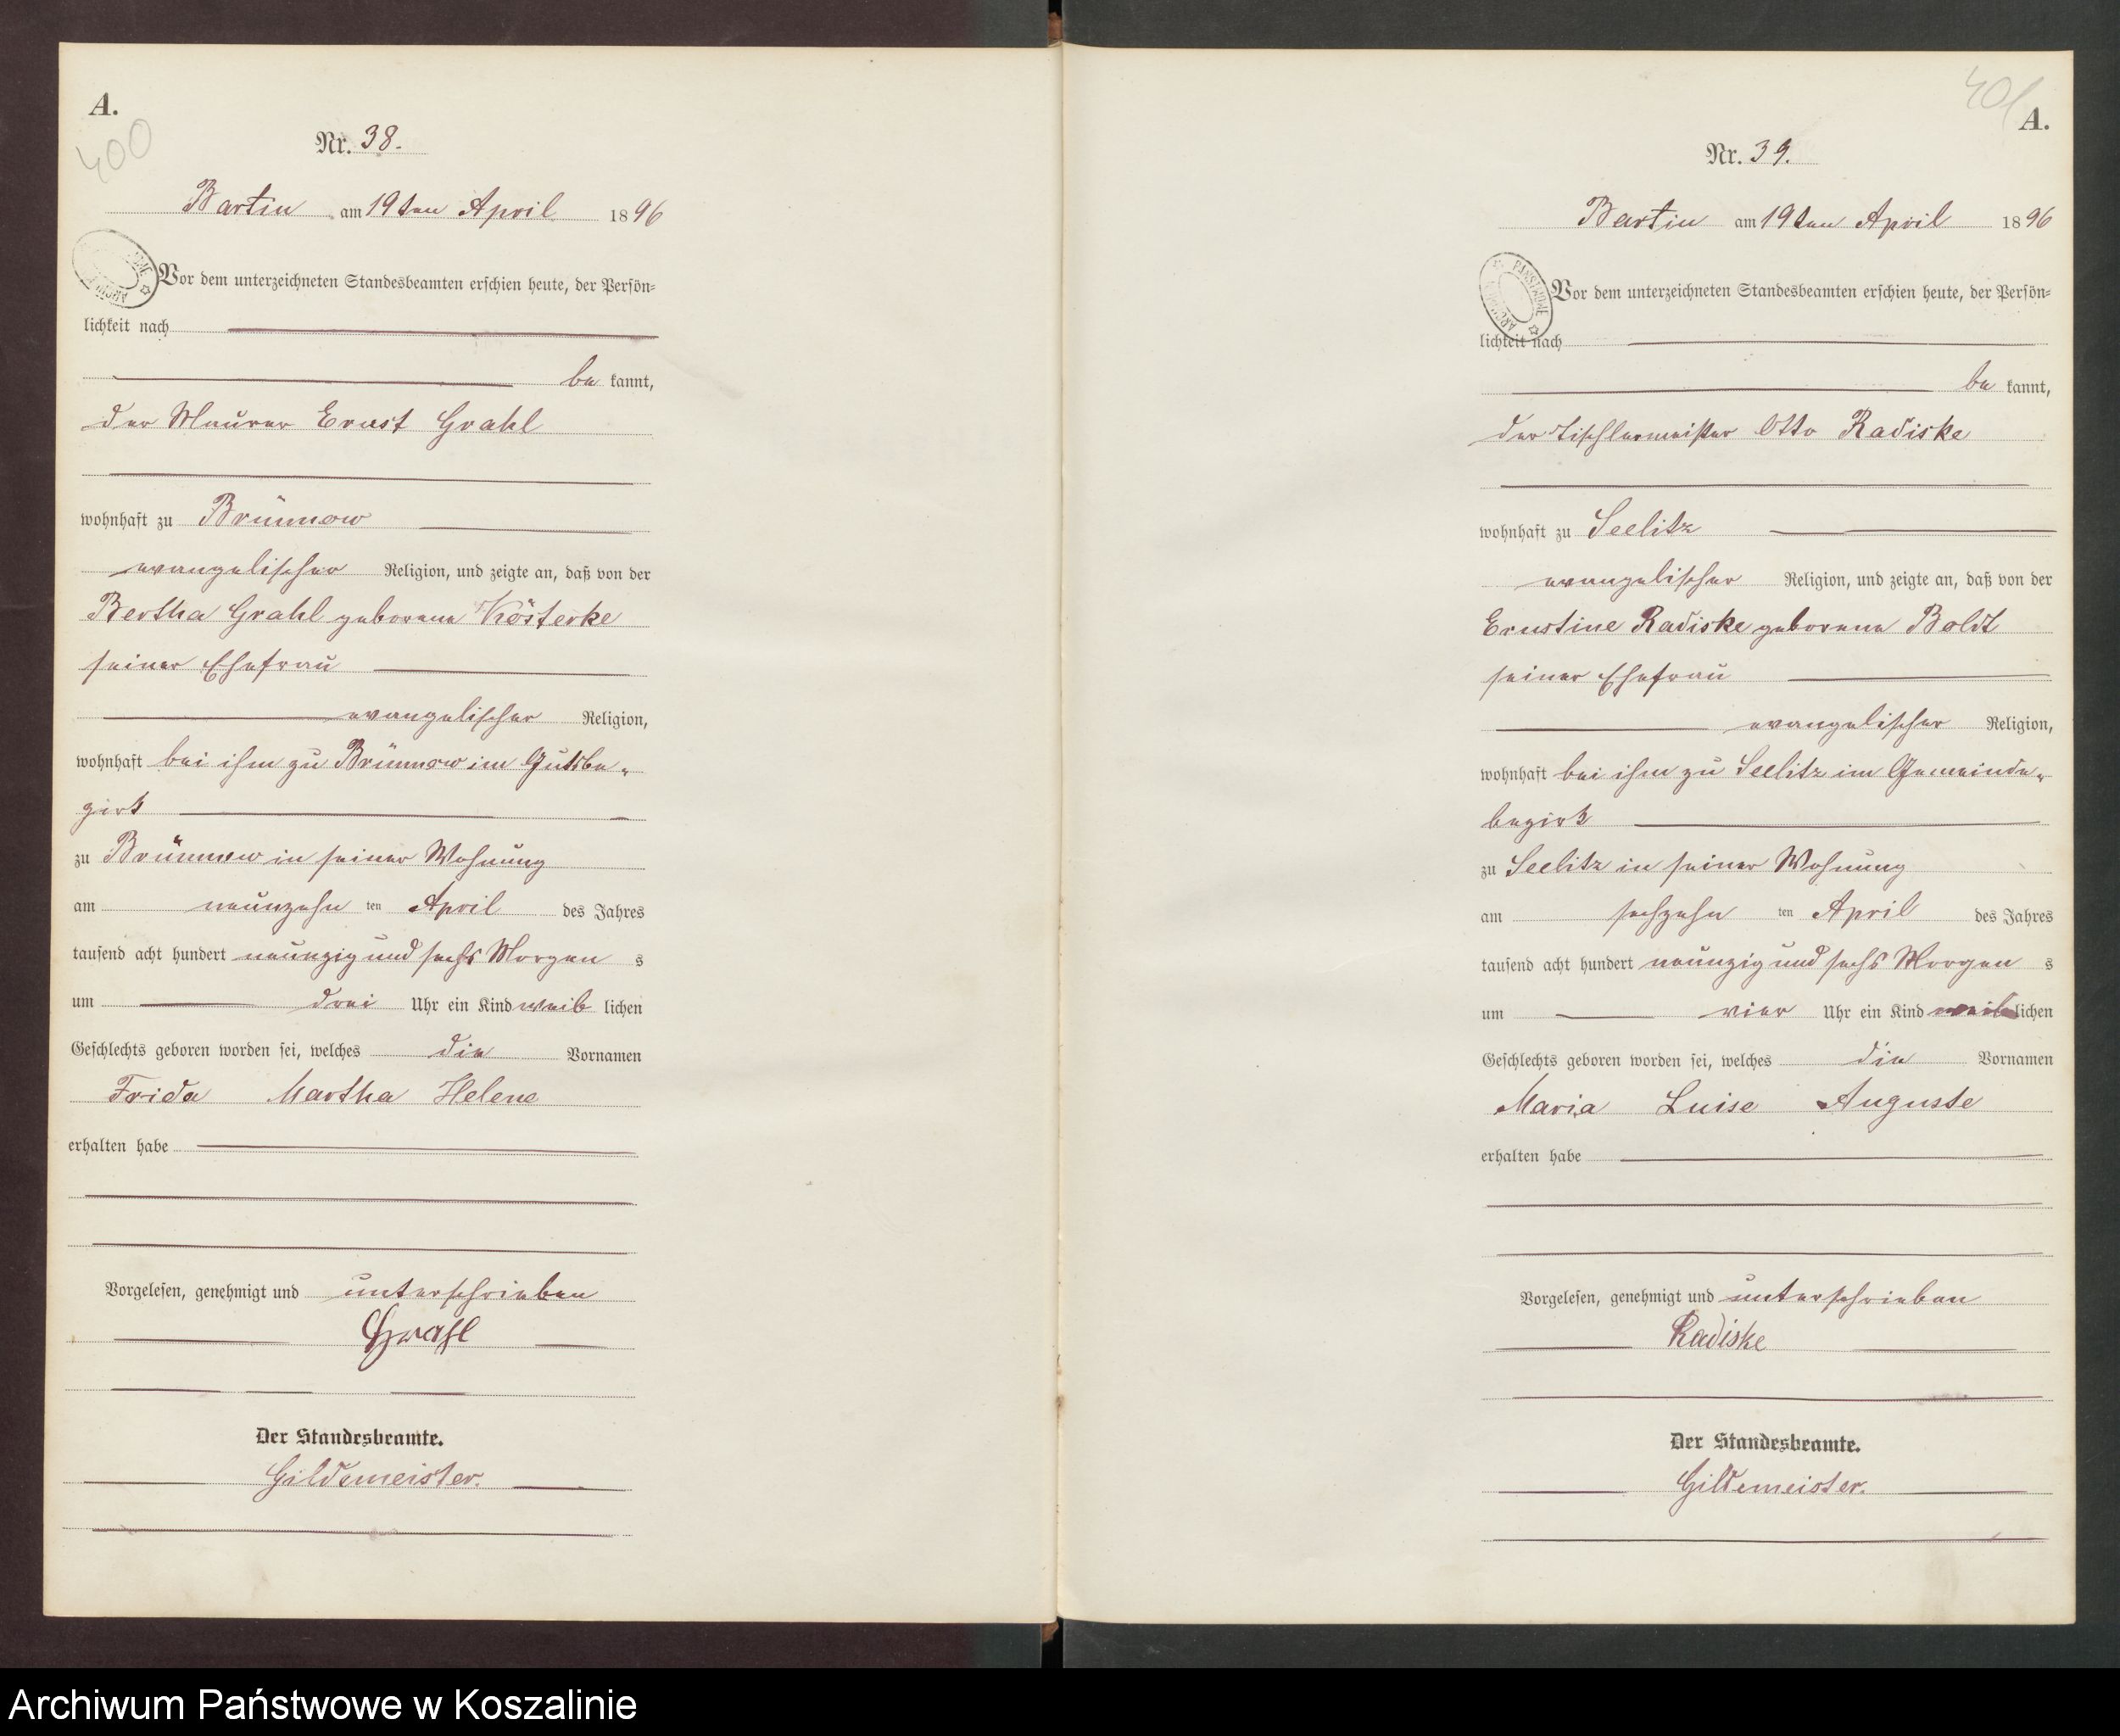 A.
400
Nr. 38.
Bartin am 19ten April 1896
Vor dem unterzeichneten Standesbeamten erschien heute, der Persön=
lichkeit nach
be kannt,
der Maurer Ernst Grahl
wohnhaft zu Brünnow
evangelischer Religion, und zeigte an, daß von der
Bertha Grahl geborene Kösterke
seiner Ehefrau
evangelischer Religion,
wohnhaft bei ihm zu Brünnow im Gutsbe-
zirk
zu Brünnow in seiner Wohnung
am neunzehn ten April des Jahres
tausend acht hundert neunzig und sechs Morgen s
um drei Uhr ein Kind weib lichen
Geschlechts geboren worden sei, welches die Vornamen
Frida Martha Helene
erhalten habe
Vorgelesen, genehmigt und unterschrieben
Grahl
Der Standesbeamte.
Gildemeister.
401
A.
Nr. 39.
Bartin am 19ten April 1896
Vor dem unterzeichneten Standesbeamten erschien heute, der Persön=
lichkeit nach
be kannt,
der Tischlermeister Otto Radiske
wohnhaft zu Seelitz
evangelischer Religion, und zeigte an, daß von der
Ernstine Radiske geborene Boldt
seiner Ehefrau
evangelischer Religion,
wohnhaft bei ihm zu Seelitz im Gemeinde-
bezirk
zu Seelitz in seiner Wohnung
am sechzehn ten April des Jahres
tausend acht hundert neunzig und sechs Morgen s
um vier Uhr ein Kind weib lichen
Geschlechts geboren worden sei, welches die Vornamen
Maria Luise Auguste
erhalten habe
Vorgelesen, genehmigt und unterschrieben
Radiske
Der Standesbeamte.
Gildemeister.
Archiwum Państwowe w Koszalinie